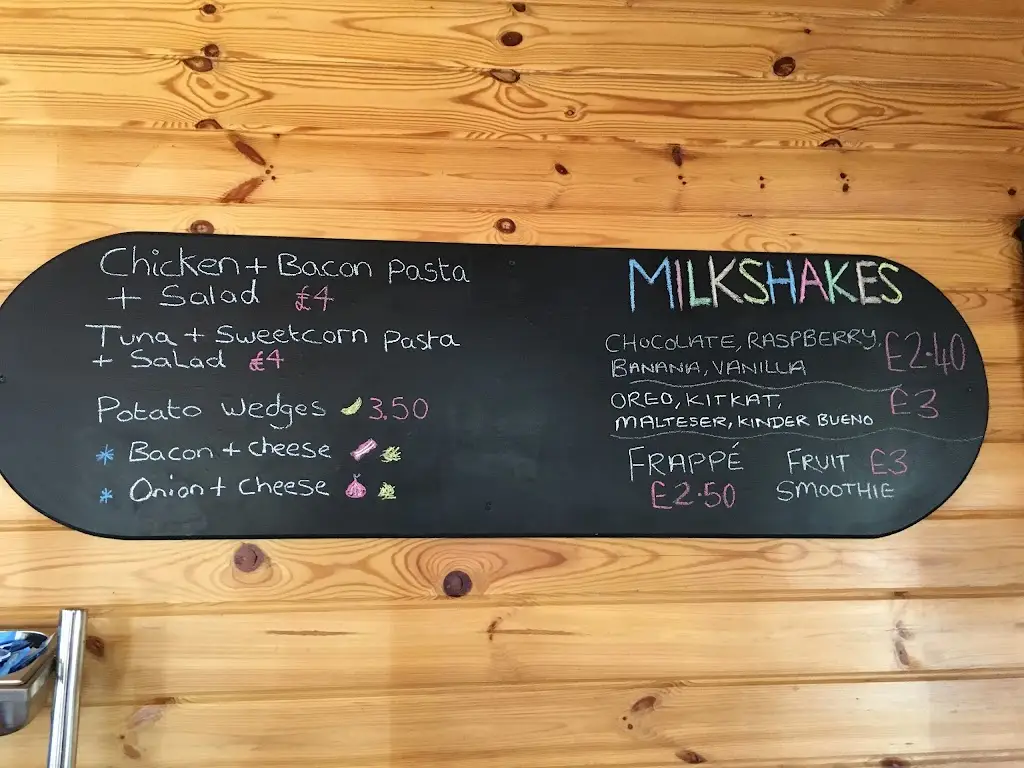 Chicken + Bacon Pasta
+ Salad £4
Tuna + Sweetcorn Pasta
+ Salad £4
Potato wedges 3.50
* Bacon + cheese
* Onion + cheese
MILKSHAKES
CHOCOLATE, RASPBERRY, £2.40
BANANA, VANILLA
OREO, KITKAT, £3
MALTESER, KINDER BUENO
FRAPPÉ
£2.50
FRUIT £3
SMOOTHIE